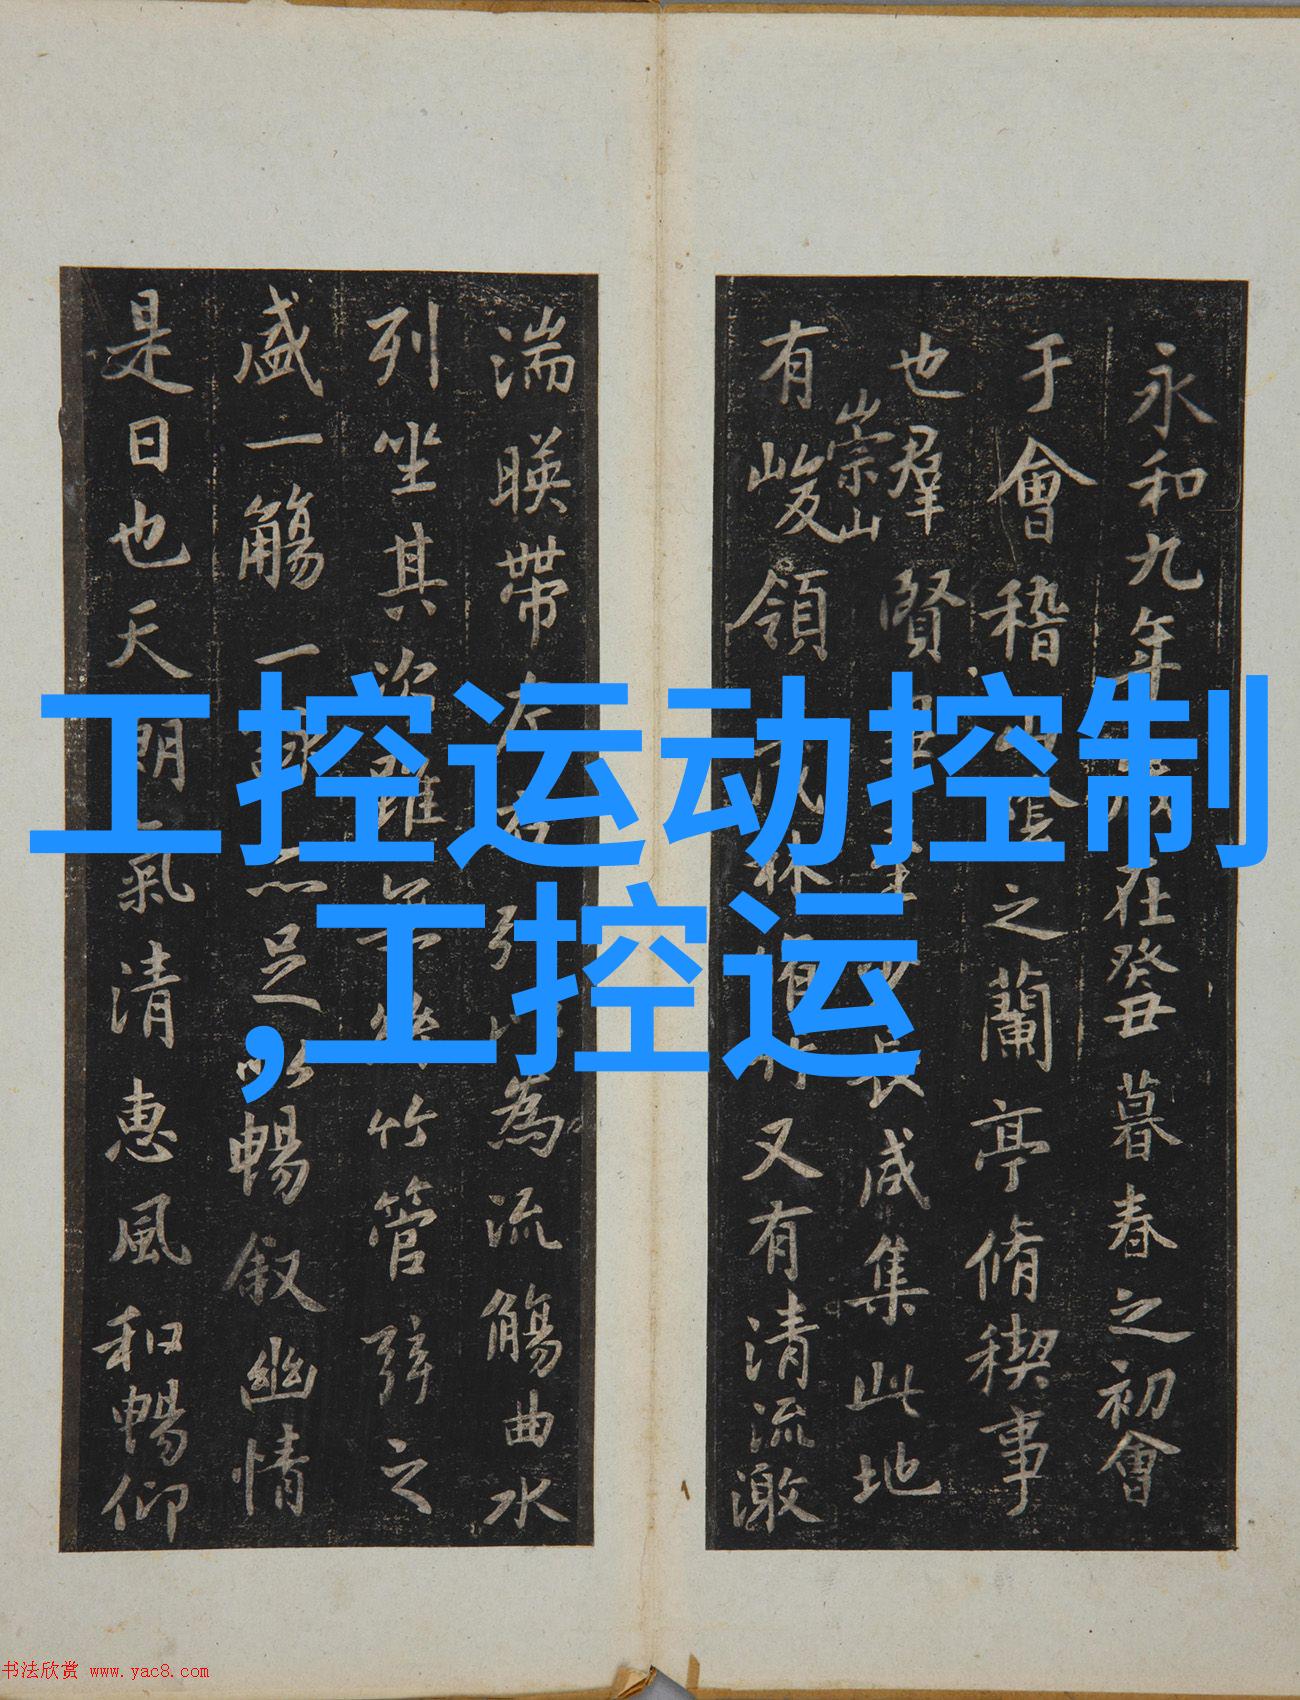 工控运动控制
,工控运
永和九年歲在癸丑暮春之初會
于會稽山陰之蘭亭脩稧事
也羣賢畢至少長咸集此地
崇山
有峻領茂林脩竹又有清流激
湍暎帶左右引以為流觴曲水
列坐其次雖無絲竹管弦之
盛一觴一詠亦足以暢叙幽情
是日也天朗氣清惠風和暢仰
书法欣赏 www.yac8.com